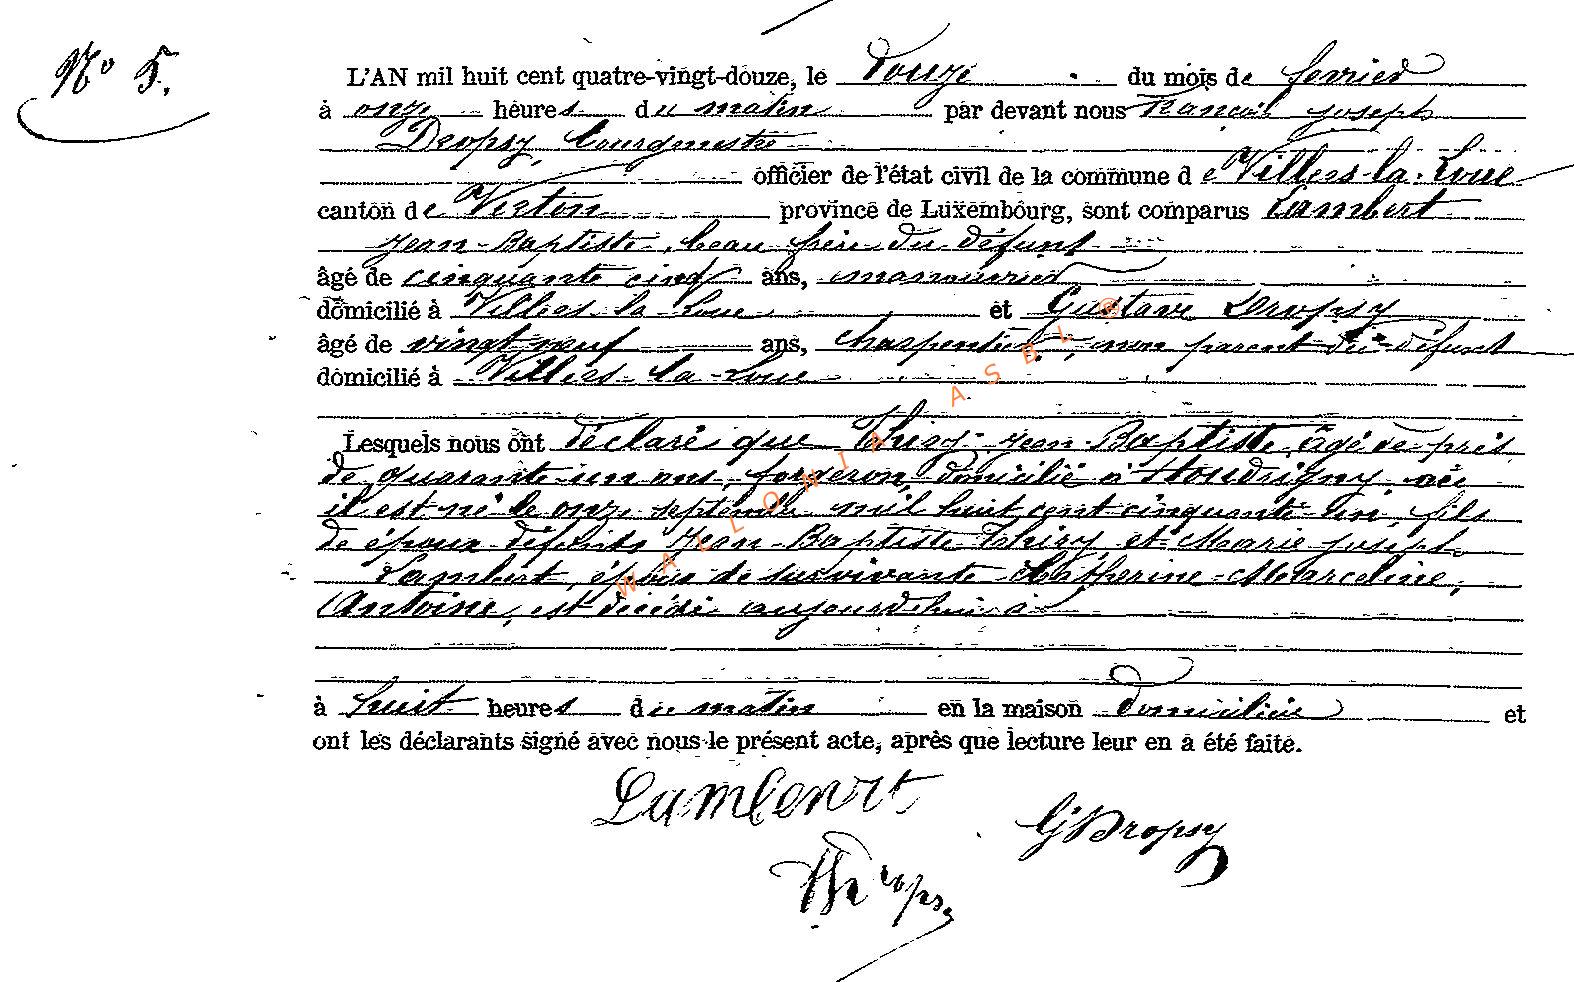 No 5.
L'AN mil huit cent quatre-vingt-douze, le douze du mois de fevrier
à onze heures du matin par devant nous François Joseph
Dropsy, bourgmestre
officier de l'état civil de la commune de Villers-la-Loue
canton de Virton province de Luxembourg, sont comparus Lambert
Jean-Baptiste, beau frère du défunt
âgé de cinquante cinq ans, manouvrier
domicilié à Villers-la-Loue et Gustave Dropsy
âgé de vingt neuf ans, charpentier, non parent du défunt
domicilié à Villers-la-Loue
Lesquels nous ont déclaré que Thiry Jean-Baptiste, âgé de près
de quarante-un ans, forgeron, domicilié à Houdrigny, où
il est né le onze septembre mil huit cent cinquante un, fils
de époux défunts Jean-Baptiste Thiry et Marie Joseph
Lambert, époux de survivante Catherine-Marceline,
Antoine, est décédé aujourdehui à
à huit heures du matin en la maison domicilière et
ont les déclarants signé avec nous le présent acte, après que lecture leur en a été faite.
Lambert
G Dropsy
Dropsy
WALLONIA ASBL ©